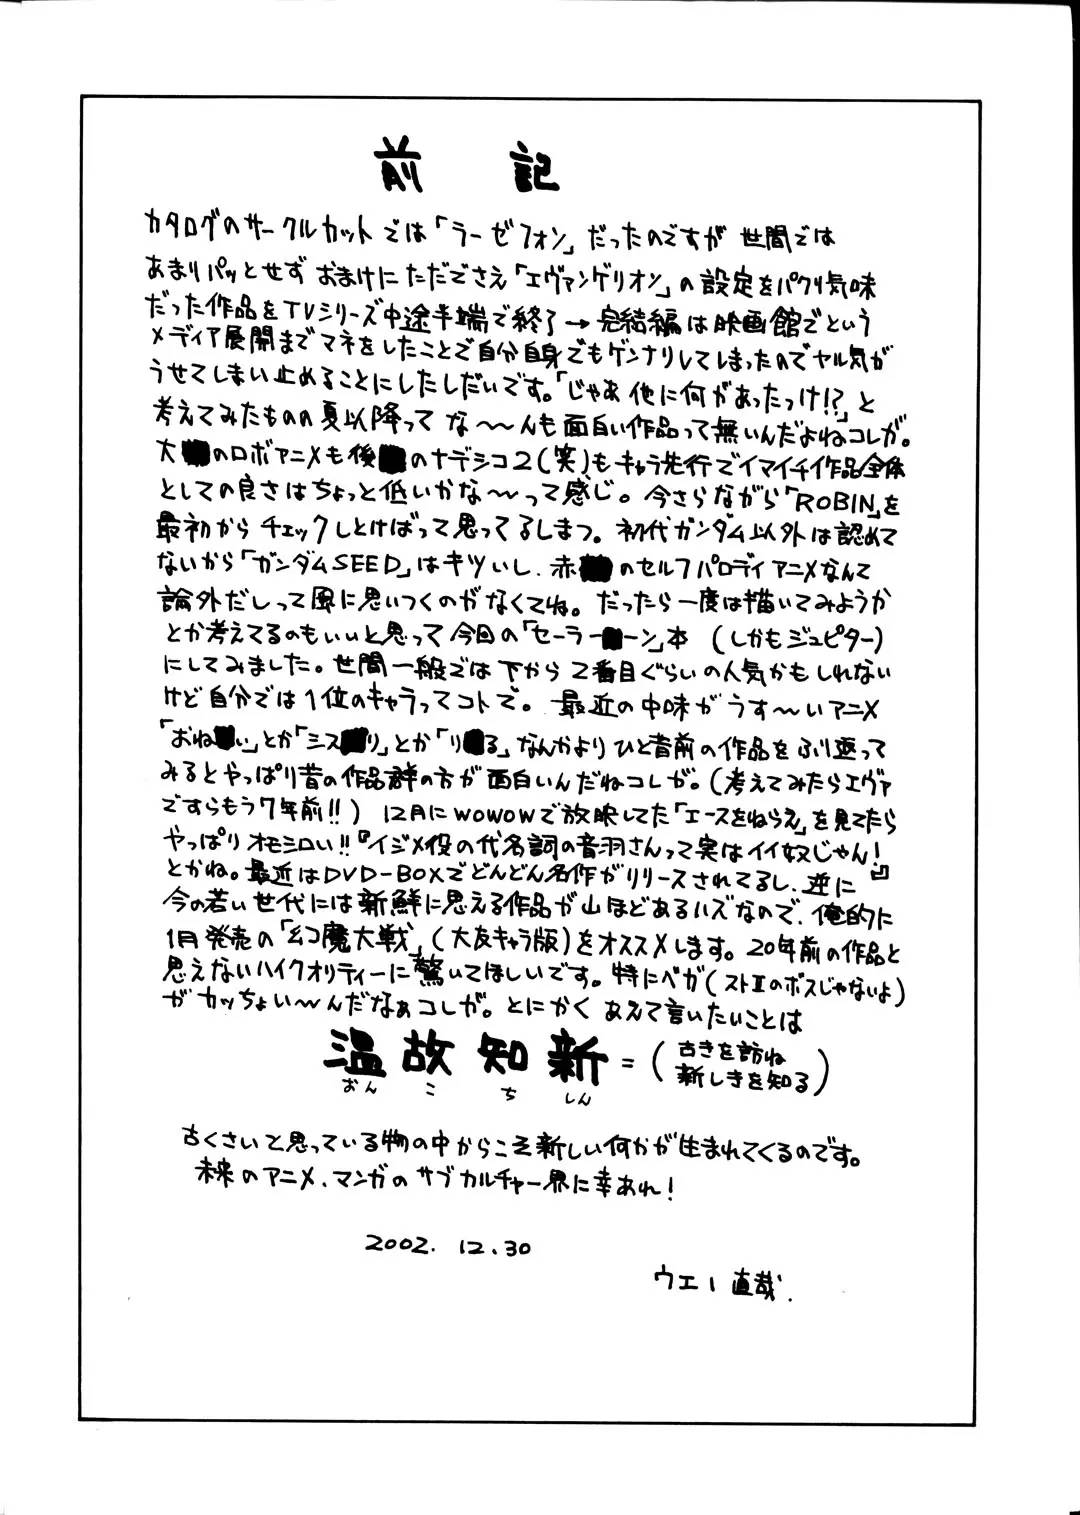 前記
カタログのサークルカットでは「ラーゼフォン」だったのですが世間では
あまりパッとせずおまけにただでさえ「エヴァンゲリオン」の設定をパクり気味
だった作品をTVシリーズ中途半端で終了→完結編は映画館でという
メディア展開までマネをしたことで自分自身でもゲンナリしてしまったのでヤル気が
うせてしまい止めることにしたしだいです。「じゃあ他に何があったっけ!?」と
考えてみたものの夏以降ってな〜〜んも面白い作品って無いんだよねコレが。
大のロボアニメも後のナデシコ2(笑)もキャラ先行でイマイチ作品全体
としての良さはちょっと低いかな〜〜って感じ。今さらながら「ROBIN」を
最初からチェックしとけばって思ってるしまつ。初代ガンダム以外は認めて
ないから「ガンダムSEED」はキツいし、赤のセルフパロディアニメなんて
論外だしって風に思いつくのがなくてね。だったら一度は描いてみようか
とか考えてるのもいいと思って今回の「セーラーーン」本(しかもジュピター)
にしてみました。世間一般では下から2番目ぐらいの人気かもしれない
けど自分では1位のキャラってコトで。最近の中味がうす〜いアニメ
「おねい」とか「シスリ」とか「りる」なんかよりひと昔前の作品をふり返って
みるとやっぱり昔の作品群の方が面白いんだねコレが。(考えてみたらエヴァ
ですらもう7年前!!)12月にWOWOWで放映してた「エースをねらえ」を見てたら
やっぱりオモシロい!!『イジメ役の代名詞の音羽さんって実はイイ奴じゃん!』
とかね。最近はDVD-BOXでどんどん名作がリリースされてるし、逆に
今の若い世代には新鮮に思える作品が山ほどあるハズなので、俺的に
1月発売の「幻魔大戦」(大友キャラ版)をオススメします。20年前の作品と
思えないハイクオリティーに驚いてほしいです。特にベガ(ストIIのボスじゃないよ)
がカッちょい〜〜んだなぁコレが。とにかくあえて言いたいことは
温故知新=(古きを訪ね
新しきを知る)
おんこちしん
古くさいと思っている物の中からこそ新しい何かが生まれてくるのです。
未来のアニメ、マンガのサブカルチャー界に幸あれ!
2002.12.30
ウエー直哉.